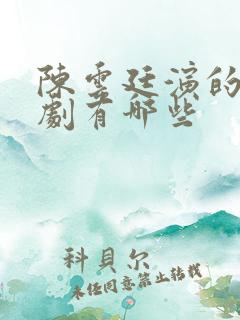 陳雲廷演的
劇有哪些
科貝尔
未经同意禁止转载